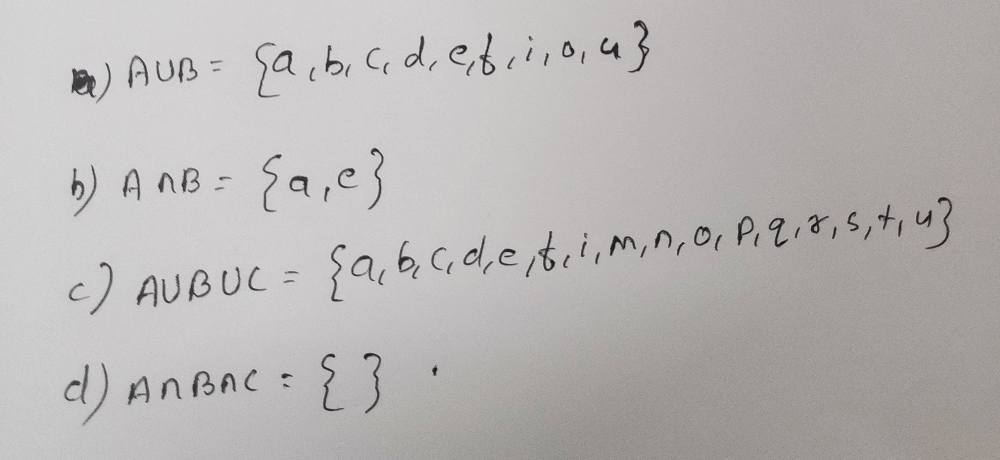 a) A∪B = {a, b, c, d, e, f, i, o, u}
b) A∩B = {a, e}
c) A∪B∪C = {a, b, c, d, e, f, i, m, n, o, p, q, r, s, t, u}
d) A∩B∩C = { } .